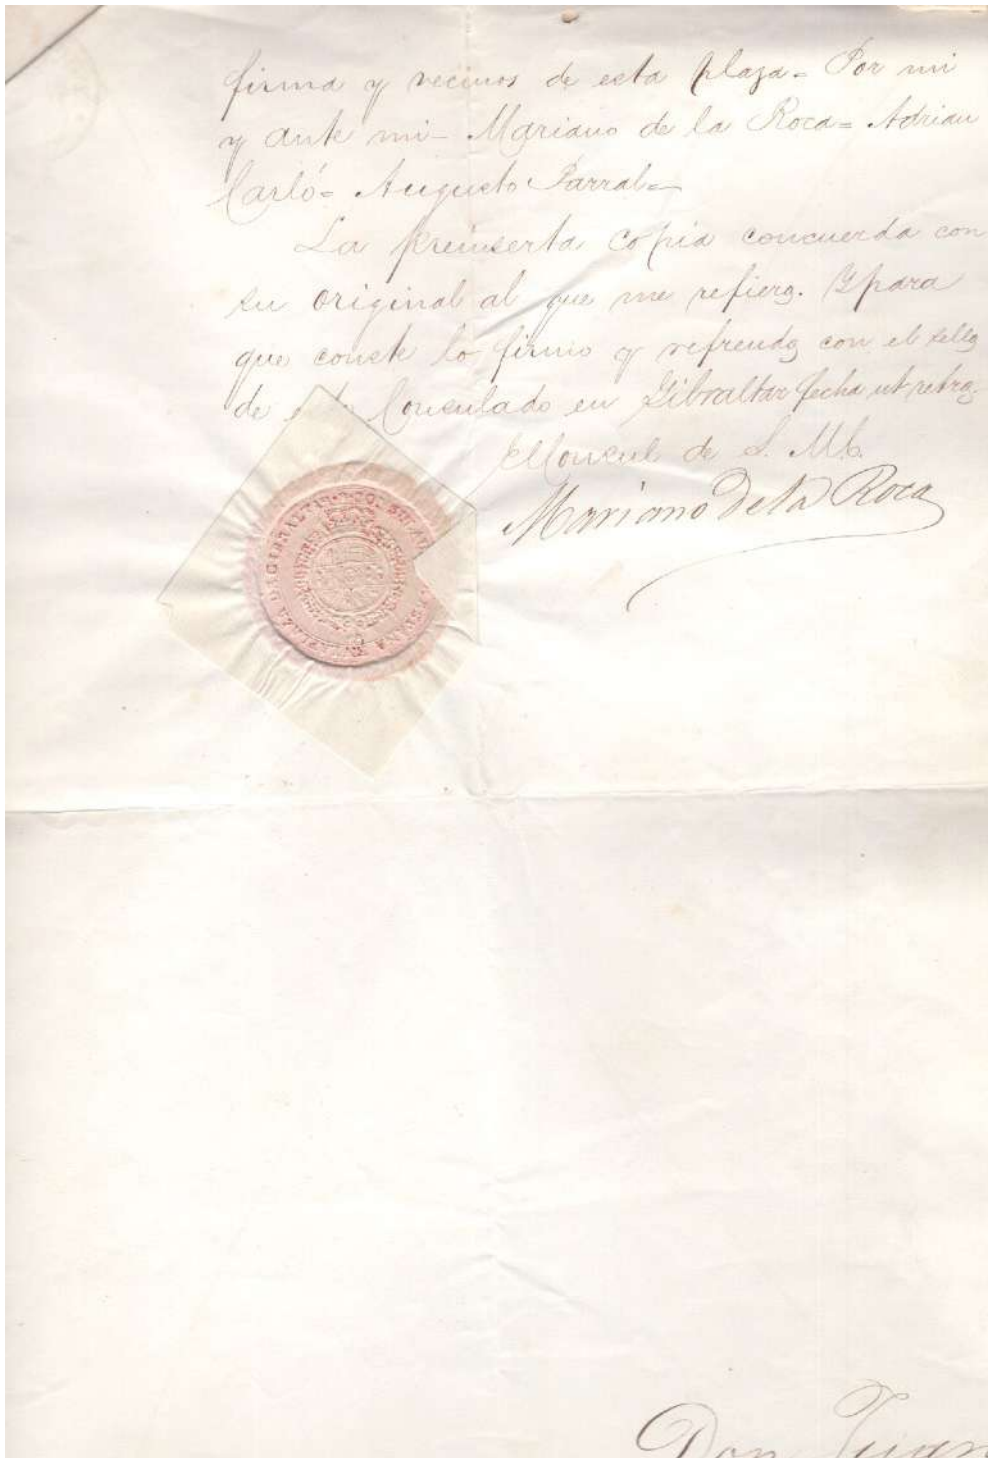 firma y vecinos de esta plaza= Por mi
y ante mi- Mariano de la Roca= Adrian
Carló= Augusto Parral=
La preinserta copia concuerda con
su original al que me refiero. Y para
que conste lo firmo y refrendo con el sello
de este Consulado en Gibraltar fecha ut retro.
El Consul de S. M. C.
Mariano De la Roca
Don Juan